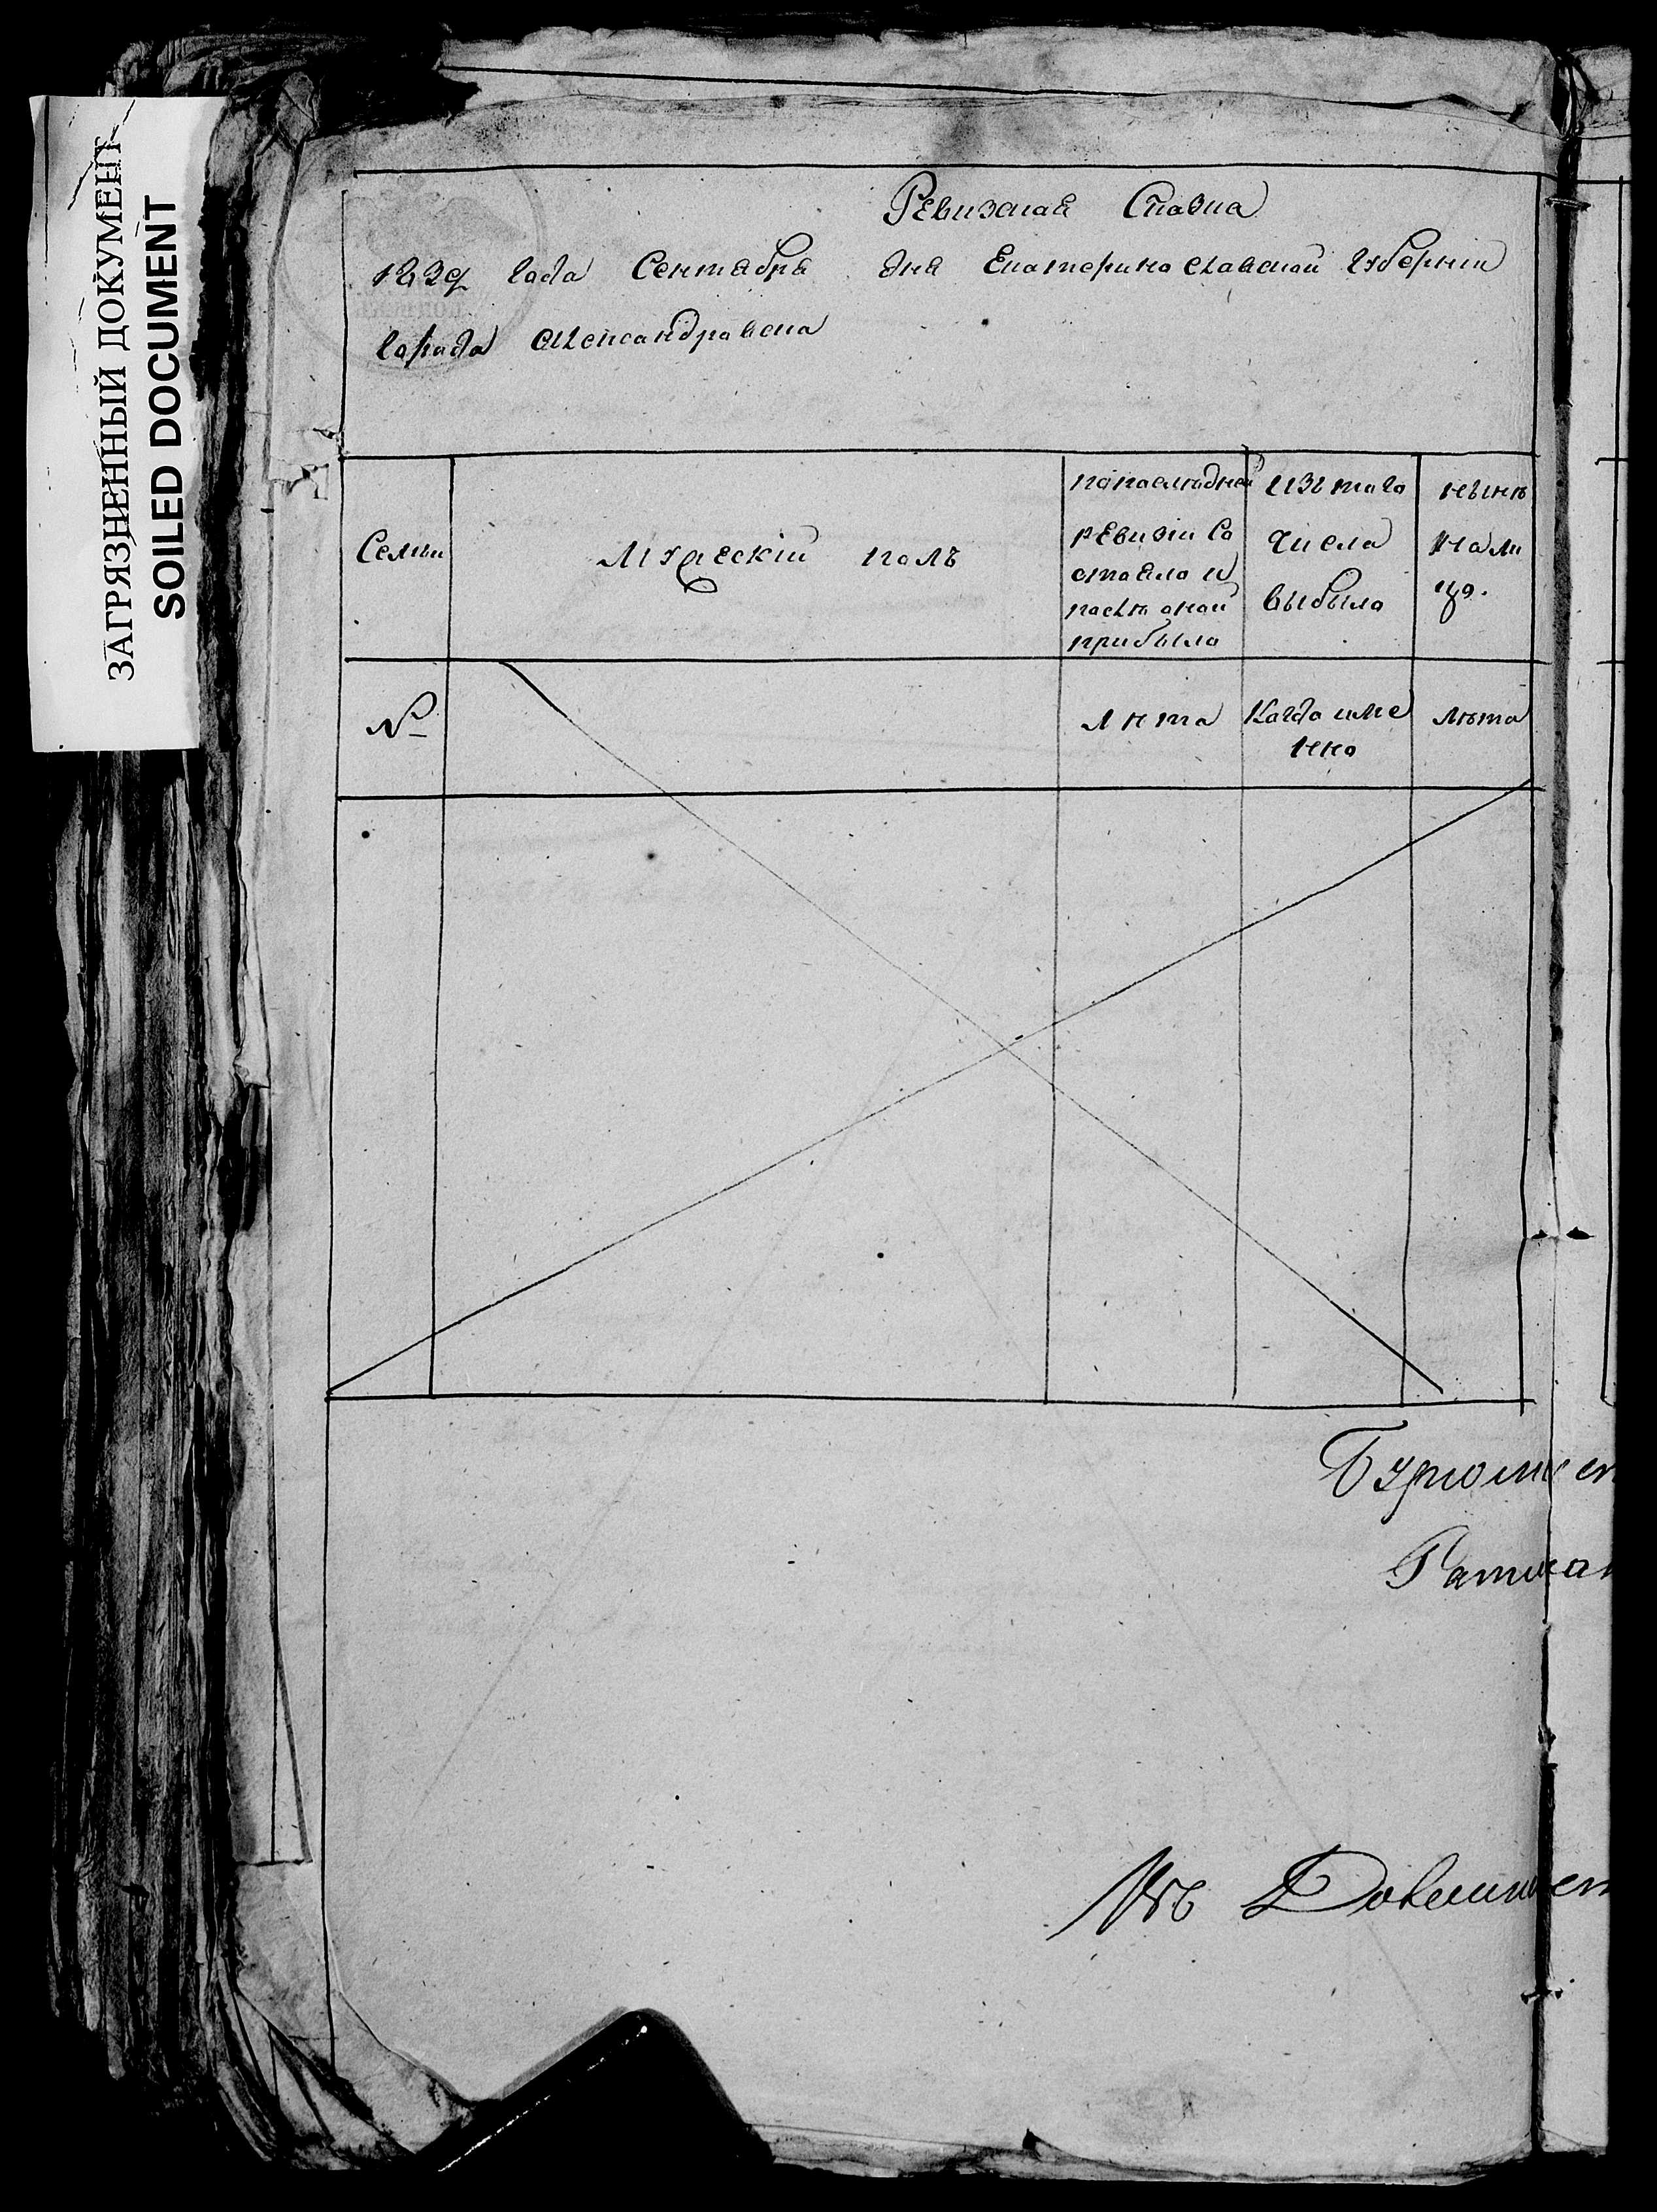 ЗАГРЯЗНЕННЫЙ ДОКУМЕНТ
SOILED DOCUMENT
Ревизская Сказка
1834 года Сентября дня Екатеринославской Губернии
города Александровска
Семьи
Мужеский полъ
попоследней
ревизіи Со
стояло и
послѣ оной
прибыло
Изъ того
числа
выбыло
нынѣ
на ли
цо.
№
Лѣта
Когда име
нно
Лѣта
Ратман